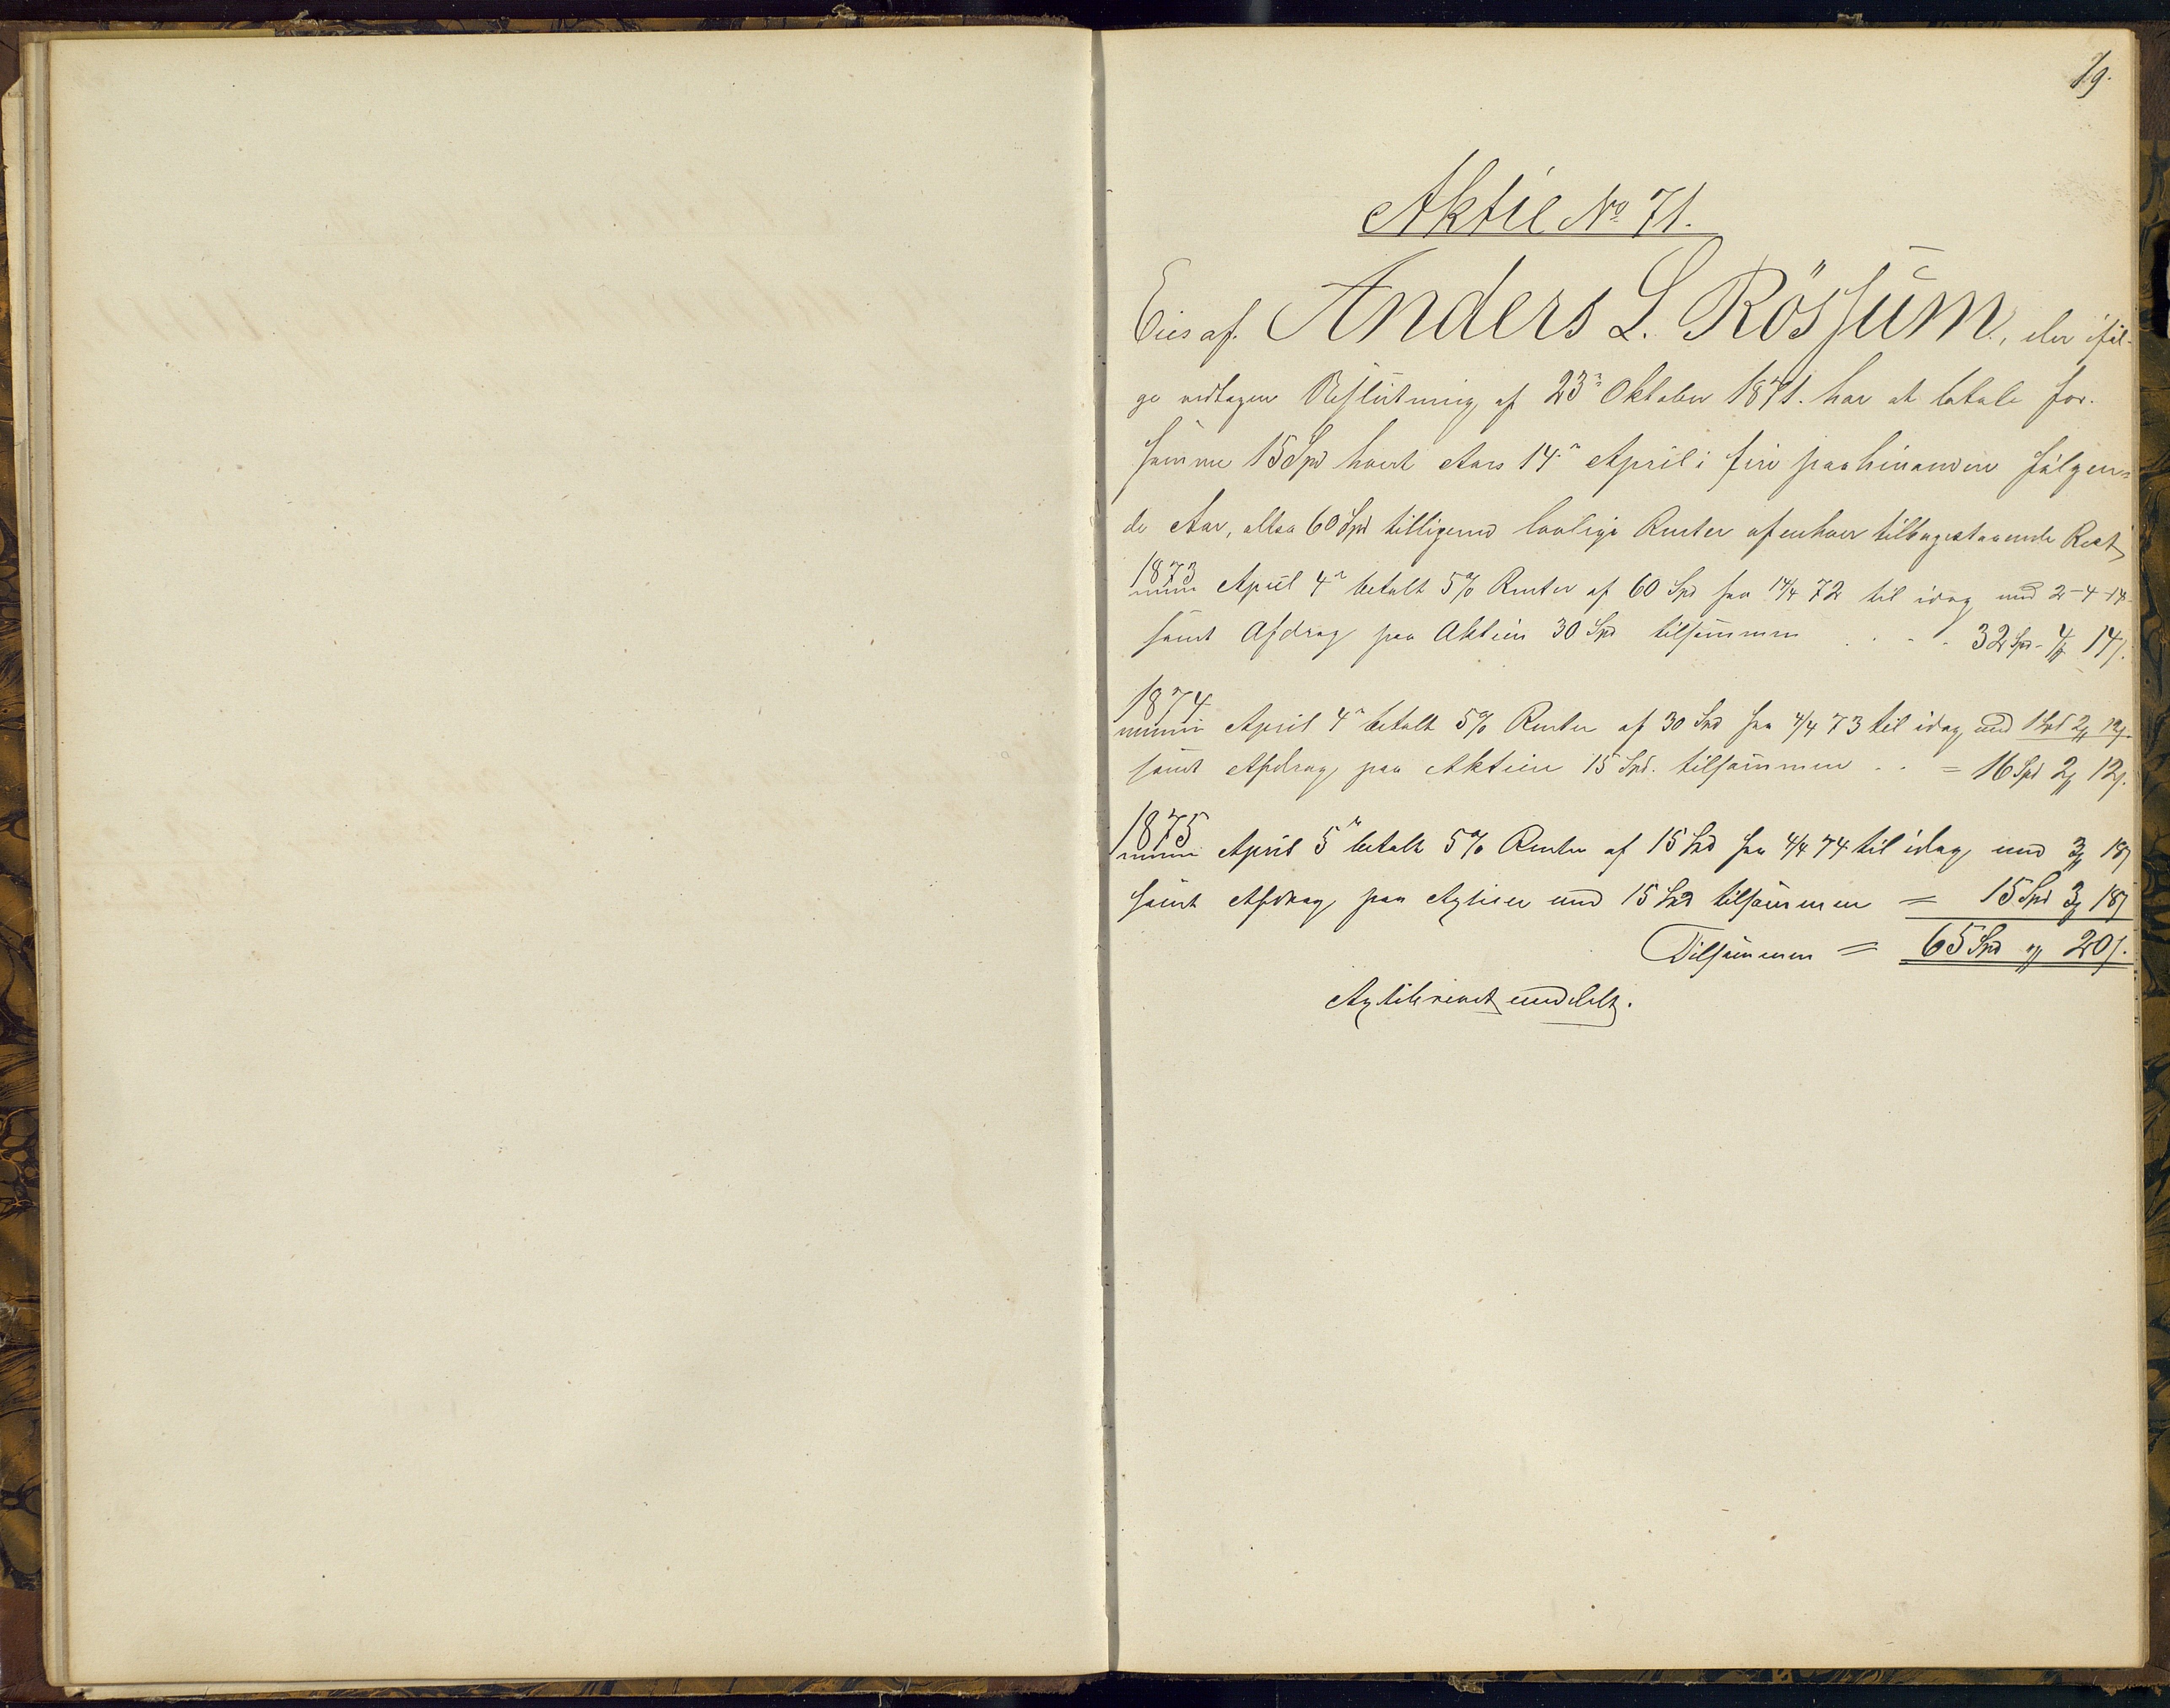 19.
Aktie No 71.
Eies af Anders L. Rössum, der iföl-
ge vedtagen Beslutning af 23de Oktober 1871. har at betale for
samme 15 Spd hvert Aars 14de April i fire paahinanden följen=
de Aar, altsaa 60 Spd tilligemed lovlige Renter af enhver tilbagestaaende Rest
1873 April 4de betalt 5% Renter af 60 Spd fra 14/4 72 til idag med 2-4-14
samt Afdrag paa Aktien 30 Spd tilsammen . . . 32 Spd - 4 14
1874 April 4de betalt 5% Renter af 30 Spd fra 4/4 73 til idag med 1 Spd 2 12
samt Afdrag paa Aktien 15 Spd. tilsammen . . = 16 Spd 2 12
1875 April 5te betalt 5% Renter af 15 Spd fra 4/4 74 til idag med 3 18
samt Afdrag paa Agtien med 15 Spd tilsammen = 15 Spd 3 18
Tilsammen = 65 Spd " 20
Agtibrevet meddelt.